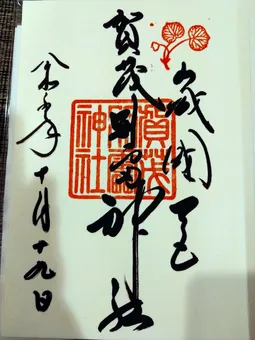 山城國一宮
賀茂別雷神社
賀茂別雷神社
令和 年十月十九日